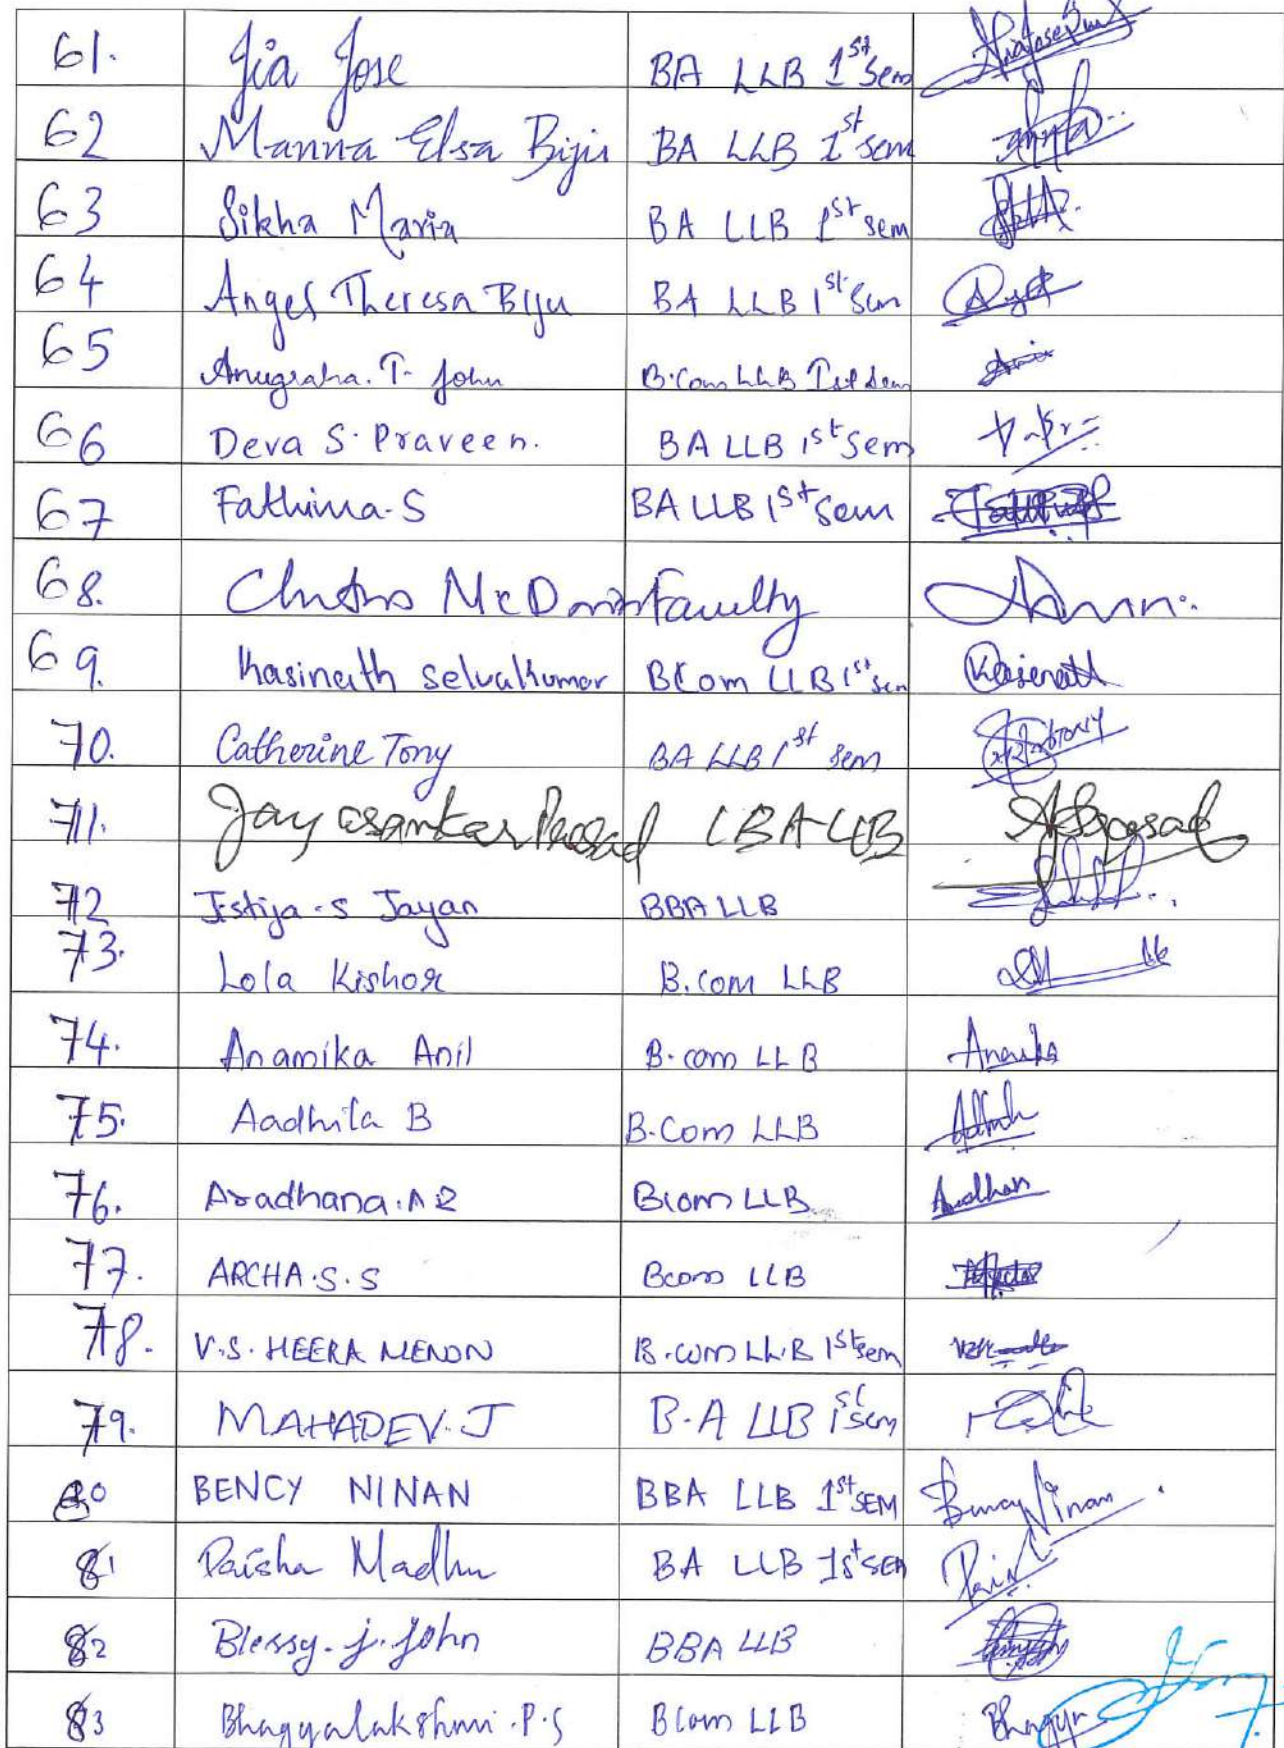 61. Jia Jose BA LLB 1st Sem
62 Manna Elsa Biji BA LLB 1st sem
63 Sikha Maria BA LLB 1st sem
64 Angel Theresa Biju BA LLB 1st Sem
65 Anugraha. T. John B.Com LLB Ist Sem
66 Deva S. Praveen. BA LLB 1st Sem
67 Fathima. S BA LLB 1st Sem
68. Faculty
69. Kasinath Selvakumar BCom LLB 1st sem Kasinath
70. Catherine Tony BA LLB 1st sem
71. Jayasankar Prasad BA LLB
72 Jestija. S Jayan BBA LLB
73. Lola Kishor B.Com LLB
74. Anamika Anil B.com LLB
75. Aadhila B B.Com LLB
76. Aradhana. A R Bcom LLB
77. ARCHA. S. S Bcom LLB
78. V.S. HEERA MENON B.com LL.B 1st sem
79. MAHADEV. J B.A LLB 1st sem
80 BENCY NINAN BBA LLB 1st SEM Bency Ninan
81 Paisha Madhu BA LLB 1st SEM
82 Blessy. J. John BBA LLB
83 Bhagyalakshmi. P. S Bcom LLB Bhagya